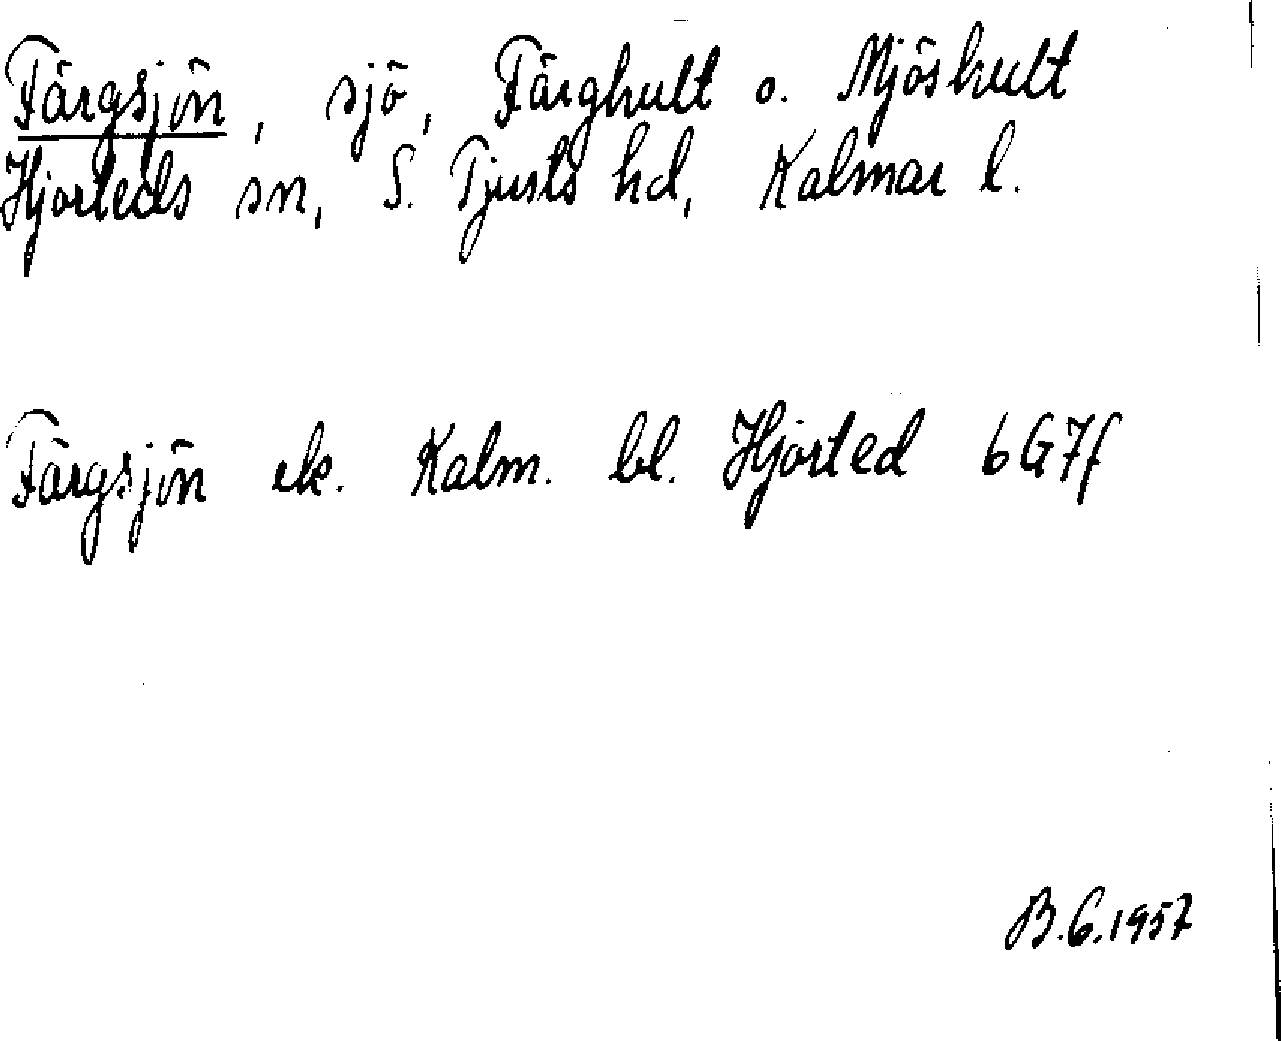 Färgsjön, sjö, Färghult o. Mjöshult
Hjorteds sn, S. Tjusts hd, Kalmar l.
Färgsjön ek. Kalm. bl. Hjorted 6G7f
B.G.1957